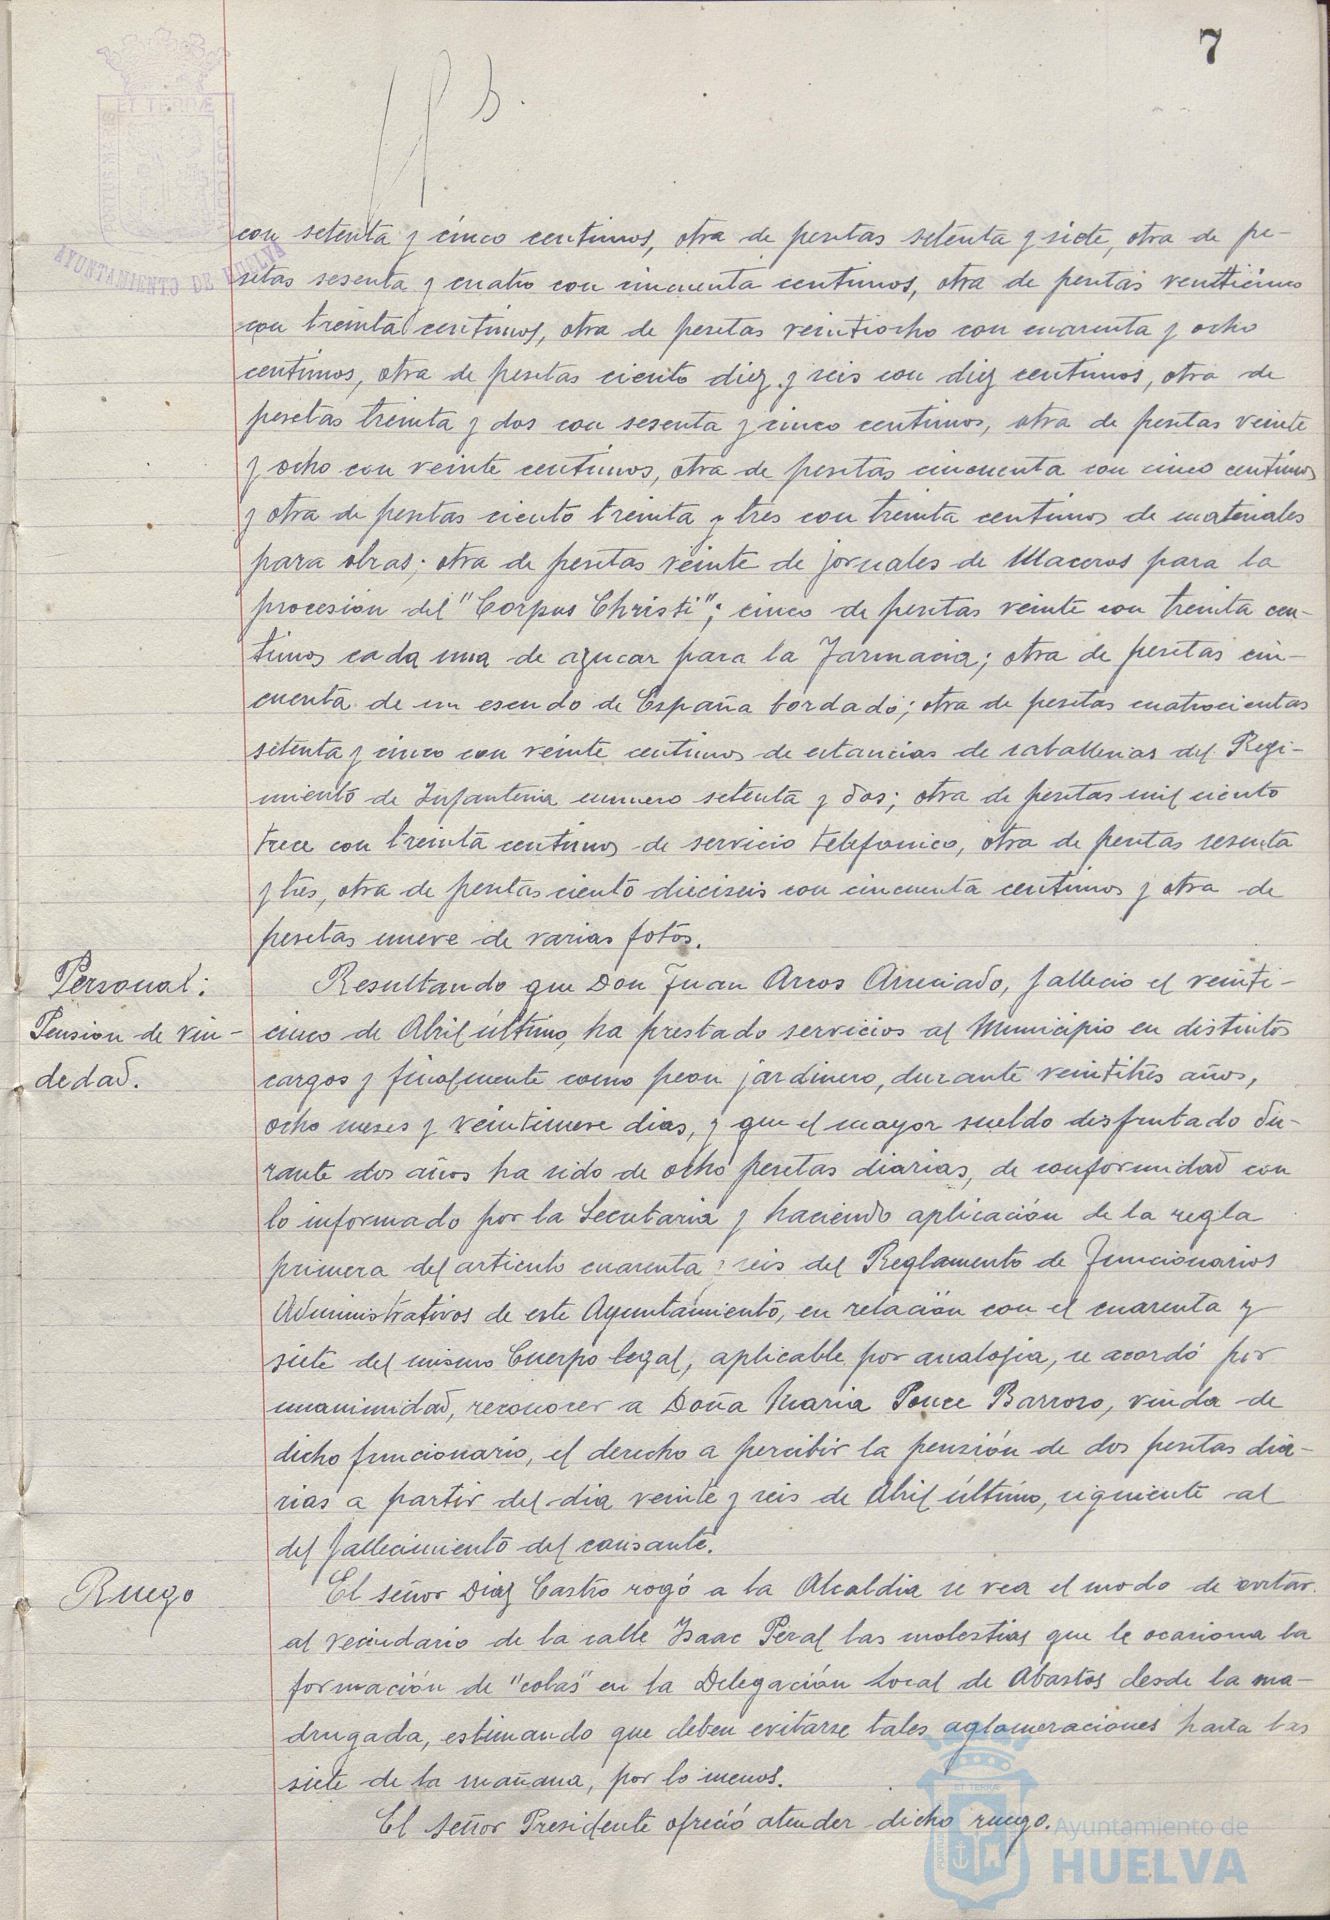 7
ET TERRÆ
AYUNTAMIENTO DE HUELVA
con setenta y cinco centimos, otra de pesetas setenta y siete, otra de pe-
setas sesenta y cuatro con cincuenta centimos, otra de pesetas veinticinco
con treinta centimos, otra de pesetas veintiocho con cuarenta y ocho
centimos, otra de pesetas ciento diez y seis con diez centimos, otra de
pesetas treinta y dos con sesenta y cinco centimos, otra de pesetas veinte
y ocho con veinte centimos, otra de pesetas cincuenta con cinco centimos
y otra de pesetas ciento treinta y tres con treinta centimos de materiales
para obras; otra de pesetas veinte de jornales de Maceros para la
procesión del "Corpus Christi"; cinco de pesetas veinte con treinta cen-
timos cada una de azucar para la Farmacia; otra de pesetas cin-
cuenta de un escudo de España bordado; otra de pesetas cuatrocientas
setenta y cinco con veinte centimos de estancias de caballerias del Regi-
miento de Infanteria numero setenta y dos; otra de pesetas mil ciento
trece con treinta centimos de servicio telefonico, otra de pesetas sesenta
y tres, otra de pesetas ciento dieciseis con cincuenta centimos y otra de
pesetas nueve de varias fotos.
Personal:
Pension de viu-
dedad.
Resultando que Don Juan Arcos Arreciado, fallecio el veinti-
cinco de Abril último, ha prestado servicios al Municipio en distintos
cargos y finalmente como peon jardinero, durante veintitres años,
ocho meses y veintinueve dias, y que el mayor sueldo disfrutado du-
rante dos años ha sido de ocho pesetas diarias, de conformidad con
lo informado por la Secretaria y haciendo aplicación de la regla
primera del articulo cuarenta y seis del Reglamento de Funcionarios
Administrativos de este Ayuntamiento, en relación con el cuarenta y
siete del mismo Cuerpo legal, aplicable por analogia, se acordó por
unanimidad, reconocer a Doña Maria Ponce Barroso, viuda de
dicho funcionario, el derecho a percibir la pensión de dos pesetas dia-
rias a partir del dia veinte y seis de Abril último, siguiente al
del fallecimiento del causante.
Ruego
El señor Diaz Castro rogó a la Alcaldia se vea el modo de evitar
al vecindario de la calle Isaac Peral las molestias que le ocasiona la
formación de "colas" en la Delegación Local de Abastos desde la ma-
drugada, estimando que deben evitarse tales aglomeraciones hasta las
siete de la mañana, por lo menos.
El señor Presidente ofreció atender dicho ruego.
Ayuntamiento de
HUELVA